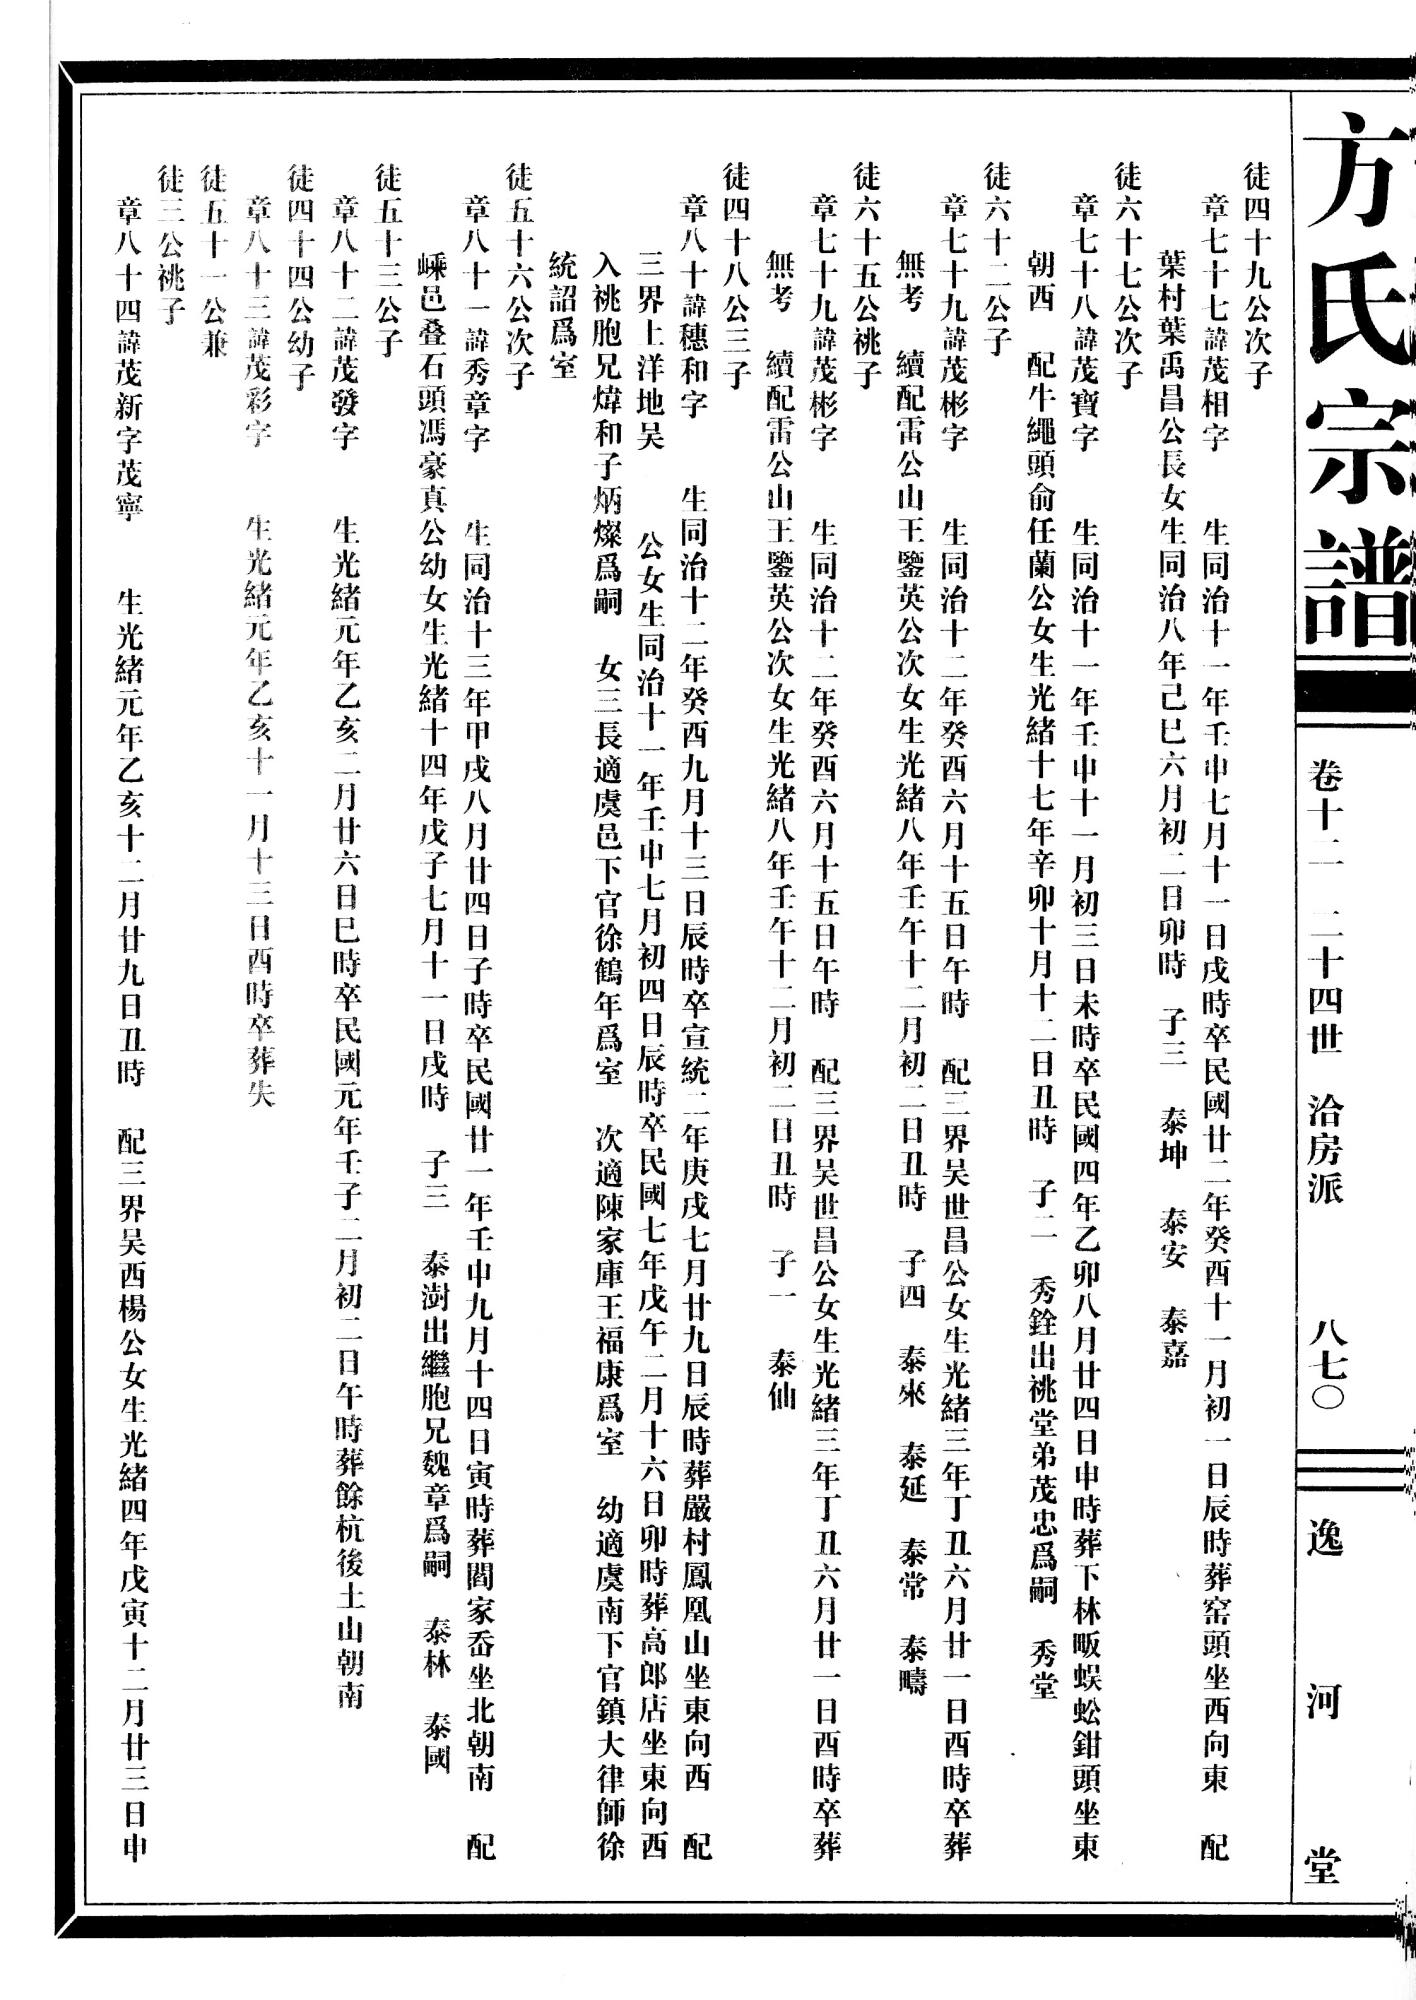 方氏宗譜
卷十二 二十四世 洽房派 八七〇
逸河堂
徒四十九公次子
章七十七諱茂相字 生同治十一年壬申七月十一日戌時卒民國廿二年癸酉十一月初一日辰時葬窑頭坐西向東 配
葉村葉禹昌公長女生同治八年己巳六月初二日卯時 子三 泰坤 泰安 泰嘉
徒六十七公次子
章七十八諱茂寶字 生同治十一年壬申十一月初三日未時卒民國四年乙卯八月廿四日申時葬下林畈蜈蚣鉗頭坐東
朝西 配牛繩頭俞任蘭公女生光緒十七年辛卯十月十二日丑時 子二 秀銓出祧堂弟茂忠爲嗣 秀堂
徒六十二公子
章七十九諱茂彬字 生同治十二年癸酉六月十五日午時 配三界吴世昌公女生光緒三年丁丑六月廿一日酉時卒葬
無考 續配雷公山王鑒英公次女生光緒八年壬午十二月初二日丑時 子四 泰來 泰延 泰常 泰疇
徒六十五公祧子
章七十九諱茂彬字 生同治十二年癸酉六月十五日午時 配三界吴世昌公女生光緒三年丁丑六月廿一日酉時卒葬
無考 續配雷公山王鑒英公次女生光緒八年壬午十二月初二日丑時 子一 泰仙
徒四十八公三子
章八十諱穗和字 生同治十二年癸酉九月十三日辰時卒宣統二年庚戌七月廿九日辰時葬嚴村鳳凰山坐東向西 配
三界上洋地吴 公女生同治十一年壬申七月初四日辰時卒民國七年戊午二月十六日卯時葬高郎店坐東向西
入祧胞兄煒和子炳燦爲嗣 女三長適虞邑下官徐鶴年爲室 次適陳家庫王福康爲室 幼適虞南下官鎮大律師徐
統詔爲室
徒五十六公次子
章八十一諱秀章字 生同治十三年甲戌八月廿四日子時卒民國廿一年壬申九月十四日寅時葬閻家岙坐北朝南 配
嵊邑叠石頭馮豪真公幼女生光緒十四年戊子七月十一日戌時 子三 泰澍出繼胞兄魏章爲嗣 泰林 泰國
徒五十三公子
章八十二諱茂發字 生光緒元年乙亥二月廿六日巳時卒民國元年壬子二月初二日午時葬餘杭後土山朝南
徒四十四公幼子
章八十三諱茂彩字 生光緒元年乙亥十一月十三日酉時卒葬失
徒五十一公兼
徒三公祧子
章八十四諱茂新字茂寧 生光緒元年乙亥十二月廿九日丑時 配三界吴西楊公女生光緒四年戊寅十二月廿三日申